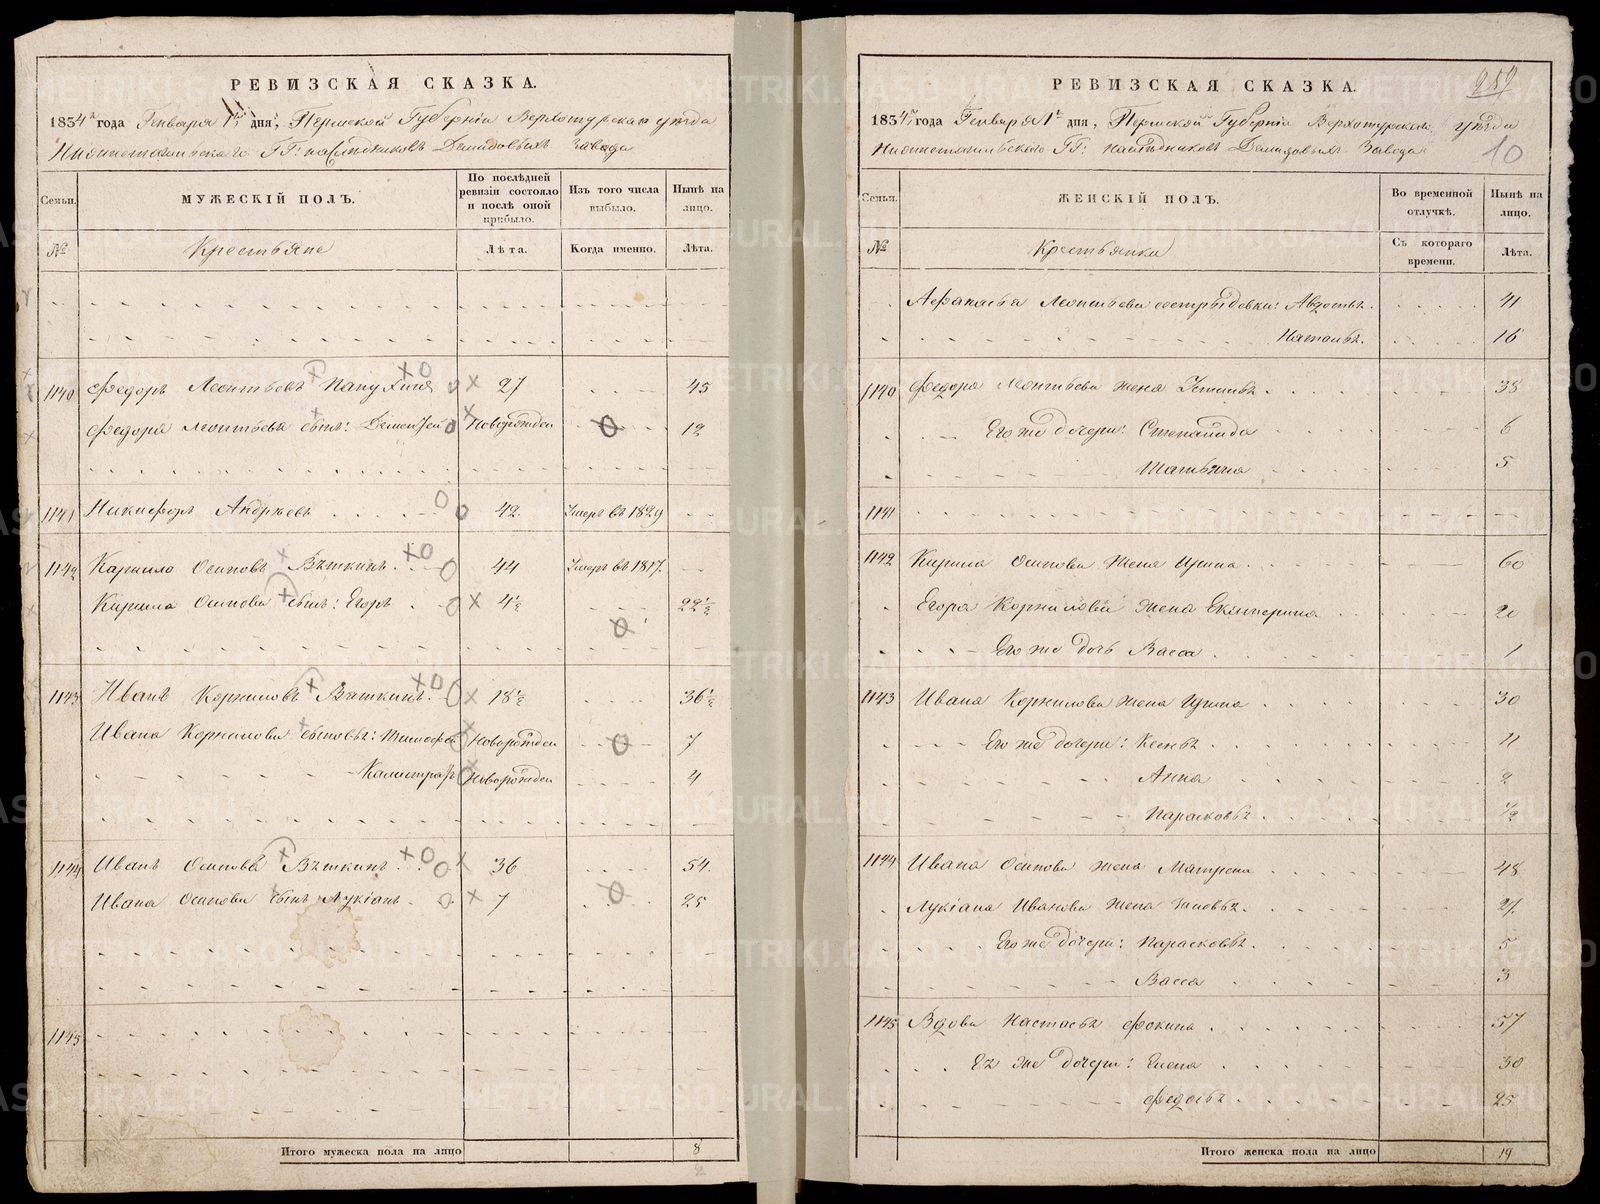 РЕВИЗСКАЯ СКАЗКА.
1834 года Генваря 1 дня, Пермской Губерніи Верхотурскаго уѣзда
Нижнетагильскаго ГГ: наслѣдниковъ Демидовыхъ завода
Семьи. МУЖЕСКІЙ ПОЛЪ. По послѣдней ревизіи состояло и послѣ оной прибыло. Изъ того числа выбыло. Нынѣ на лицо.
№ Крестьяне Лѣта. Когда именно. Лѣта.
1140 Федоръ Леонтьевъ 27 45
Федора Леонтьева сынъ: Дементей Новорожден 12
1141 Никифоръ Андреевъ 42 Умеръ въ 1829
1142 Карнило Осиповъ Вяткинъ 44 Умеръ въ 1817.
Кирила Осипова сынъ: Егоръ 4½ 22½
1143 Иванъ Корниловъ Вяткинъ 18½ 36½
Ивана Корнилова сыновья: Тимофей Новорожден 7
Калистратъ Новорожден 4
1144 Иванъ Осиповъ Вяткинъ 36 54
Ивана Осипова сынъ Лукіанъ 7 25
1145
Итого мужеска пола на лицо 8
2
РЕВИЗСКАЯ СКАЗКА.
259
1834 года Генваря 1 дня, Пермской Губерніи Верхотурскаго уѣзда
Нижнетагильскаго ГГ: наслѣдниковъ Демидовыхъ Завода
10
Семьи. ЖЕНСКІЙ ПОЛЪ. Во временной отлучкѣ. Нынѣ на лицо.
№ Крестьянки Съ котораго времени. Лѣта.
Афанасья Леонтьева сестры девки: Авдотья. 41
Наталья. 16
1140 Федора Леонтьева жена Устинья 38
Его же дочери: Степанида 6
Татьяна 5
1141
1142 Кирила Осипова жена Ирина 60
Егора Корнилова жена Екатерина 20
Его же дочь Васса 1
1143 Ивана Корнилова жена Ирина 30
Его же дочери: Ксенья 11
Анна 2
Парасковья ½
1144 Ивана Осипова жена Матрена 48
Лукіана Иванова жена 27
Его же дочери: Парасковья 5
Васса 3
1145 Вдова Настасья Фокина 57
Ея же дочери: Елена 30
Федосья 25
Итого женска пола на лицо 19
METRIKI.GASO-URAL.RU